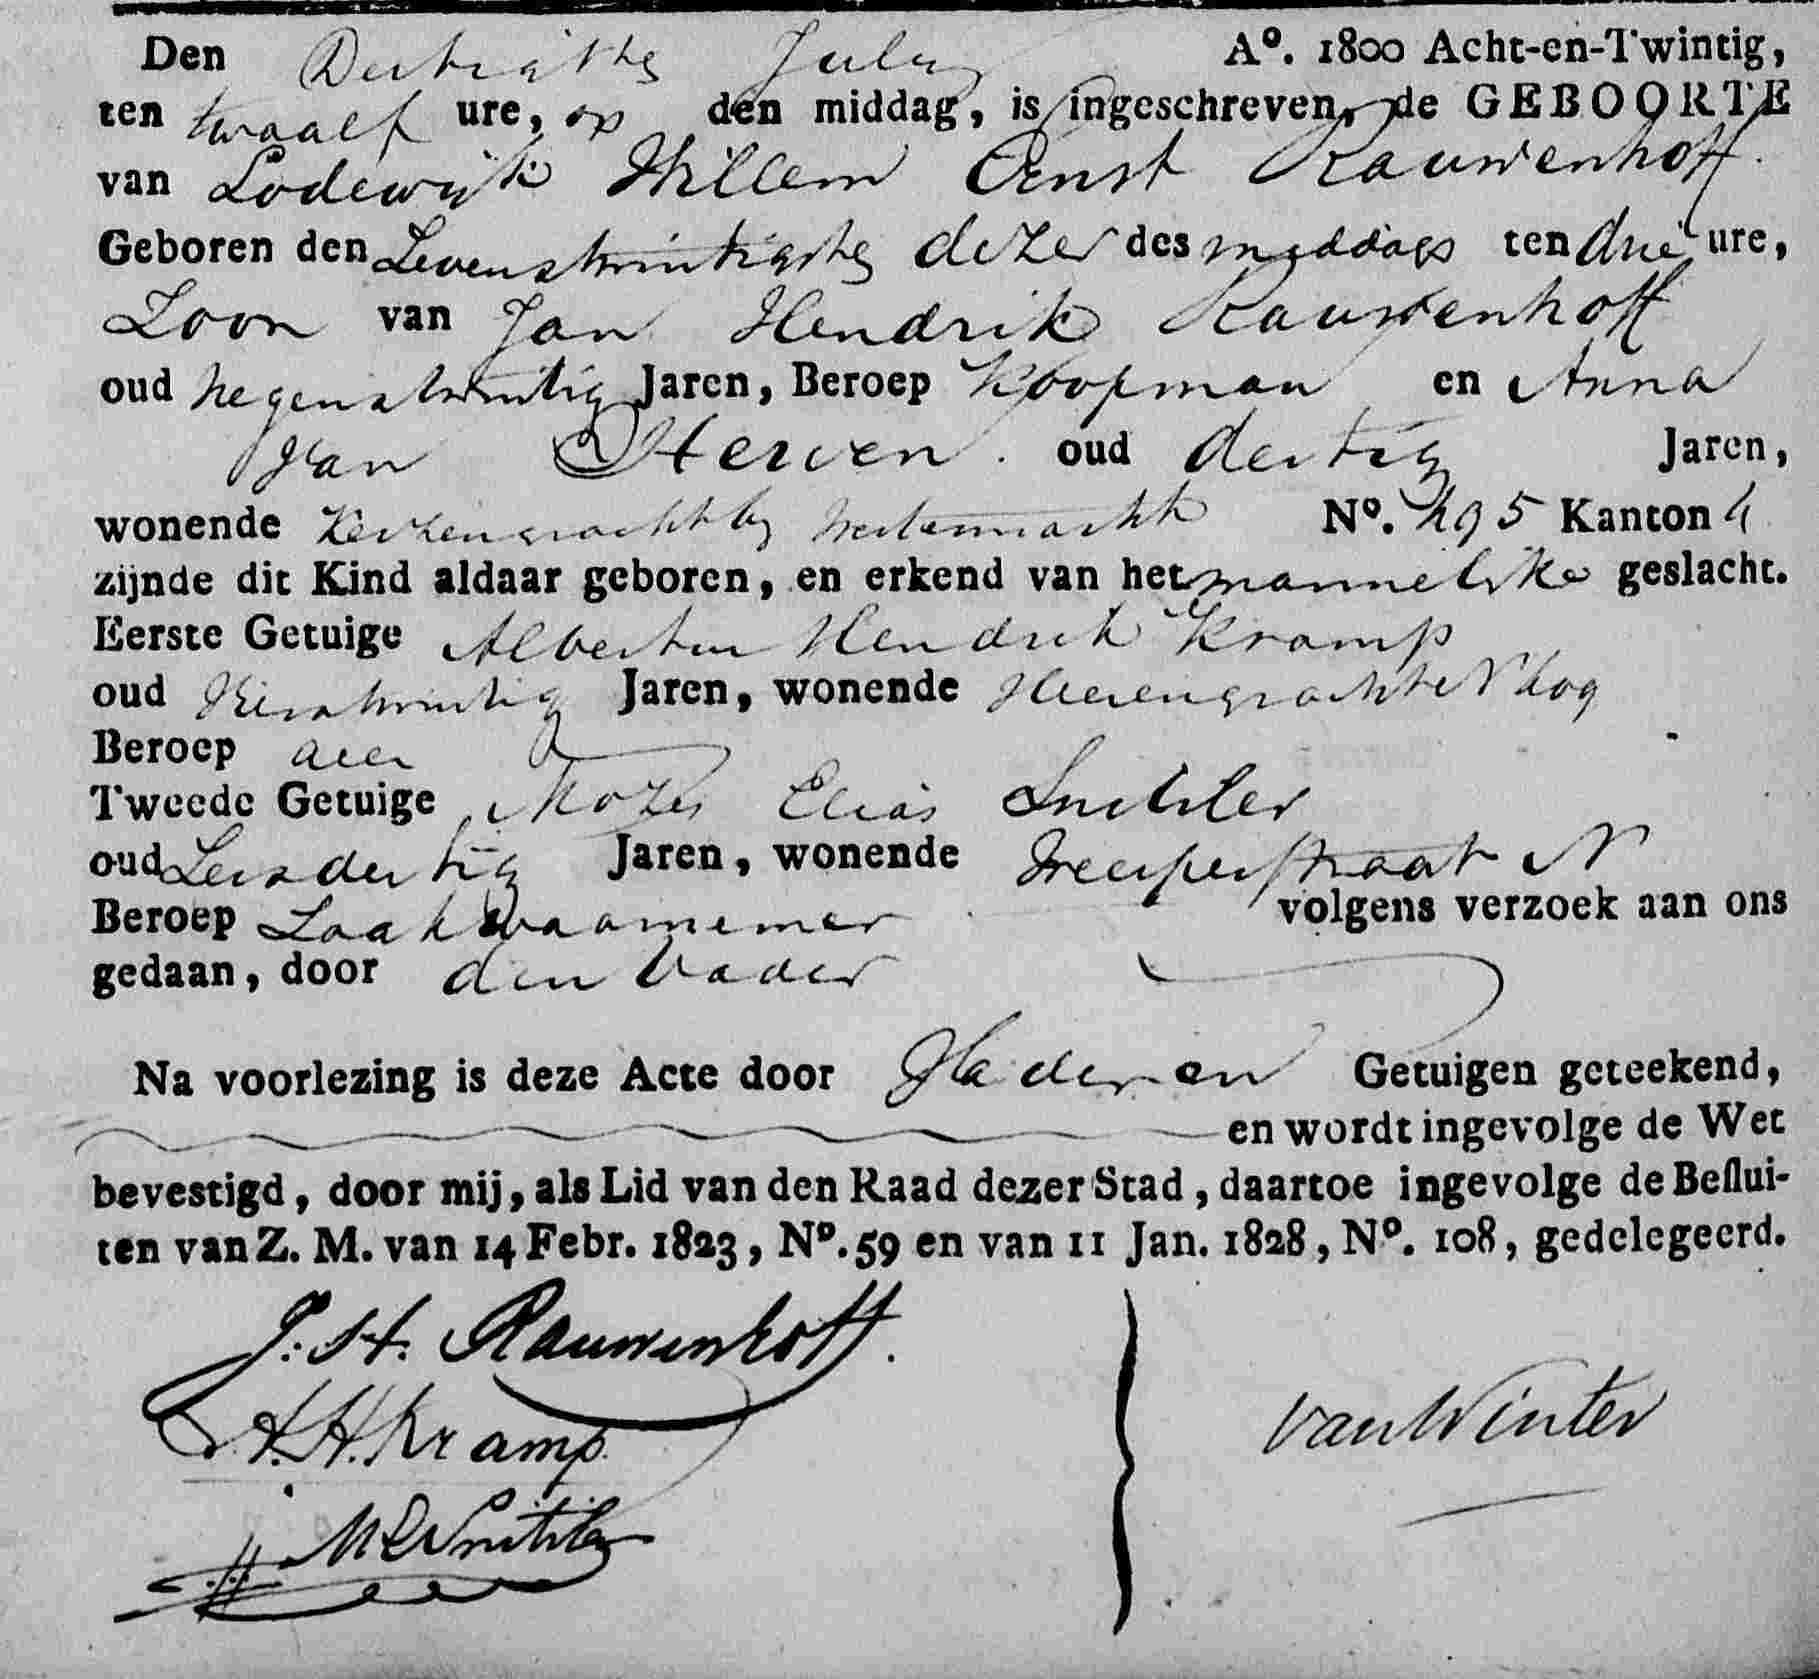 Den Dertigste July Aº. 1800 Acht-en-Twintig,
ten twaalf ure, op den middag, is ingeschreven, de GEBOORTE
van Lodewijk Willem Ernst Rauwenhoff.
Geboren den Zevenentwintigste dezer des middags ten drie ure,
Zoon van Jan Hendrik Rauwenhoff
oud negenentwintig Jaren, Beroep Koopman en Anna
van Herwen. oud dertig Jaren,
wonende Keizersgracht by Nº. 495 Kanton 4
zijnde dit Kind aldaar geboren, en erkend van het mannelike geslacht.
Eerste Getuige Albertus Hendrik Kramp
oud Jaren, wonende Heerengracht
Beroep
Tweede Getuige Mozes Elias Snitsler
oud Zesendertig Jaren, wonende Weesperstraat N
Beroep Zaakwaarnemer volgens verzoek aan ons
gedaan, door den Vader
Na voorlezing is deze Acte door Vader en Getuigen geteekend,
en wordt ingevolge de Wet
bevestigd, door mij, als Lid van den Raad dezer Stad, daartoe ingevolge de Beslui-
ten van Z. M. van 14 Febr. 1823, Nº. 59 en van 11 Jan. 1828, Nº. 108, gedelegeerd.
J. H. Rauwenhoff.
A. H. Kramp.
van Winter
M E Snitsler